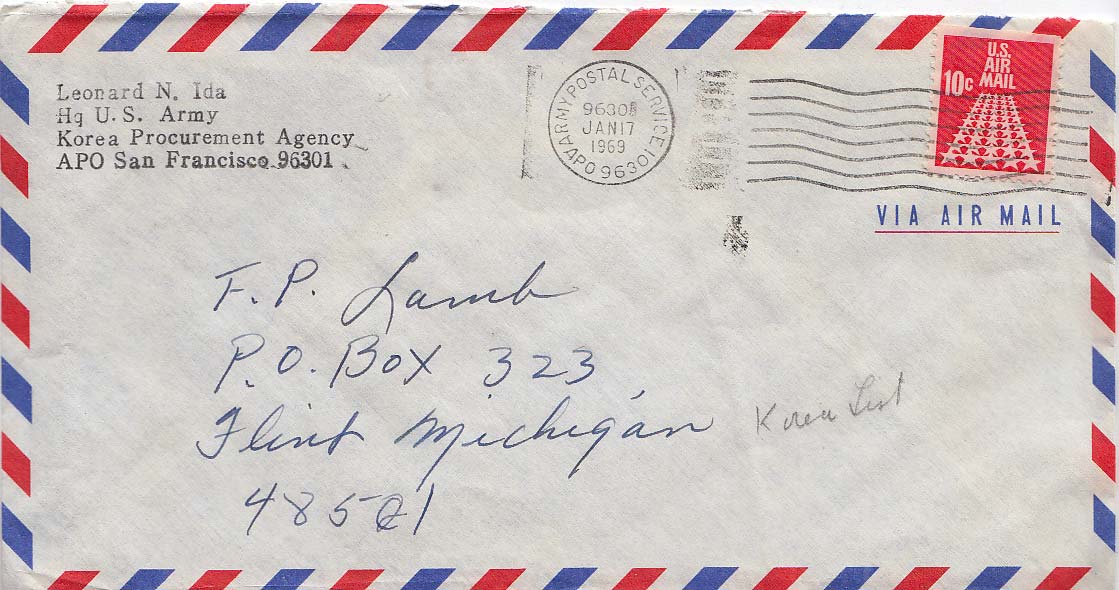 Leonard N. Ida
Hq U. S. Army
Korea Procurement Agency
APO San Francisco 96301
ARMY POSTAL SERVICE
96301
JAN 17
1969
APO 96301
U.S.
AIR
10c MAIL
VIA AIR MAIL
F. P. Lamb
P.O. Box 323
Flint Michigan
48501
Korea List